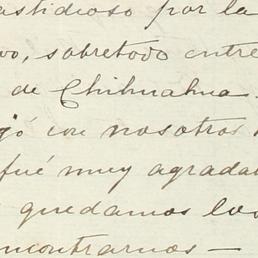 astidioso por la
vo, sobretodo entre
de Chihuahua.
jó con nosotros
fué muy agrada
quedamos los
ncontrarnos —